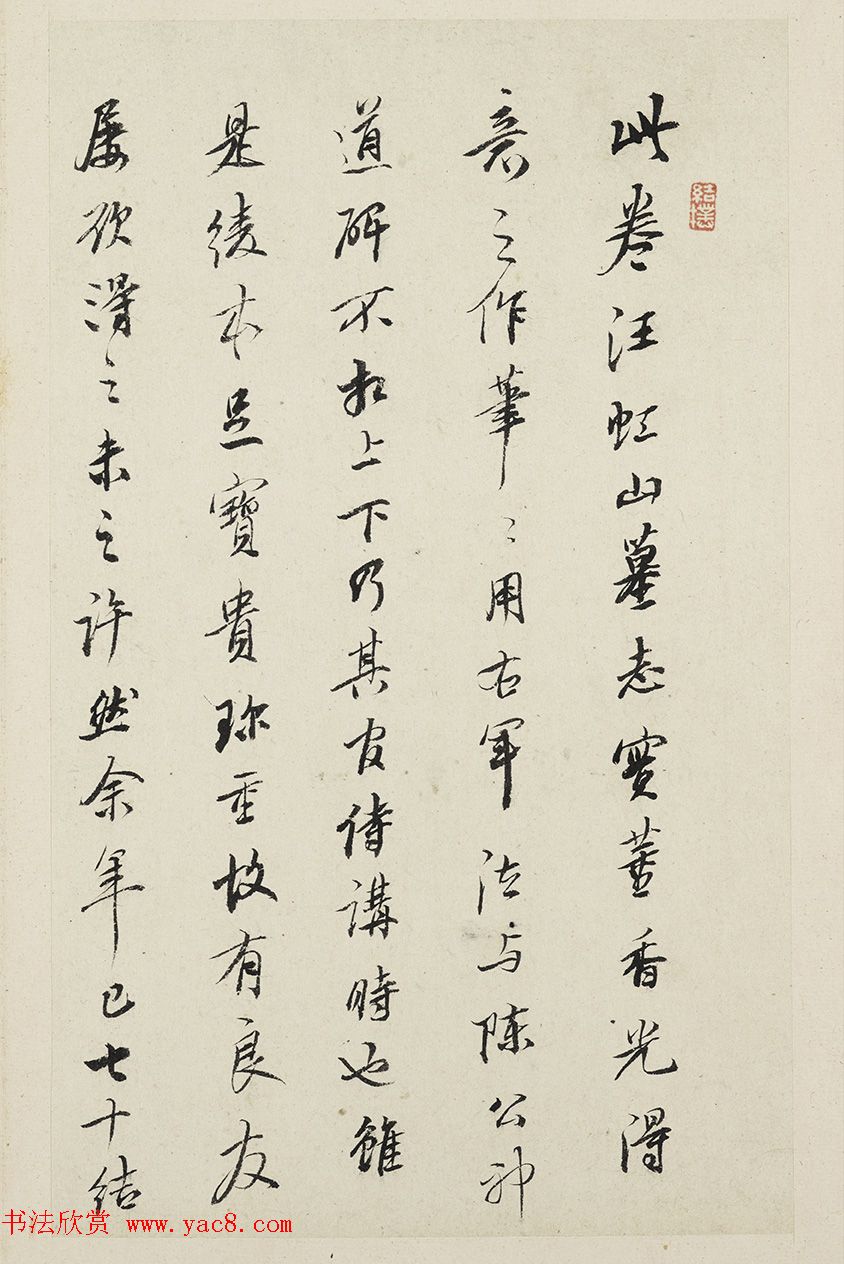 此卷汪虹山墓志實董香光得
意之作筆〻用右軍法与陳公神
道碑不相上下乃其官侍講時也雖
是綾本足寶貴珍重故有良友
屡欲得之未之許然余年已七十結
书法欣赏 www.yac8.com